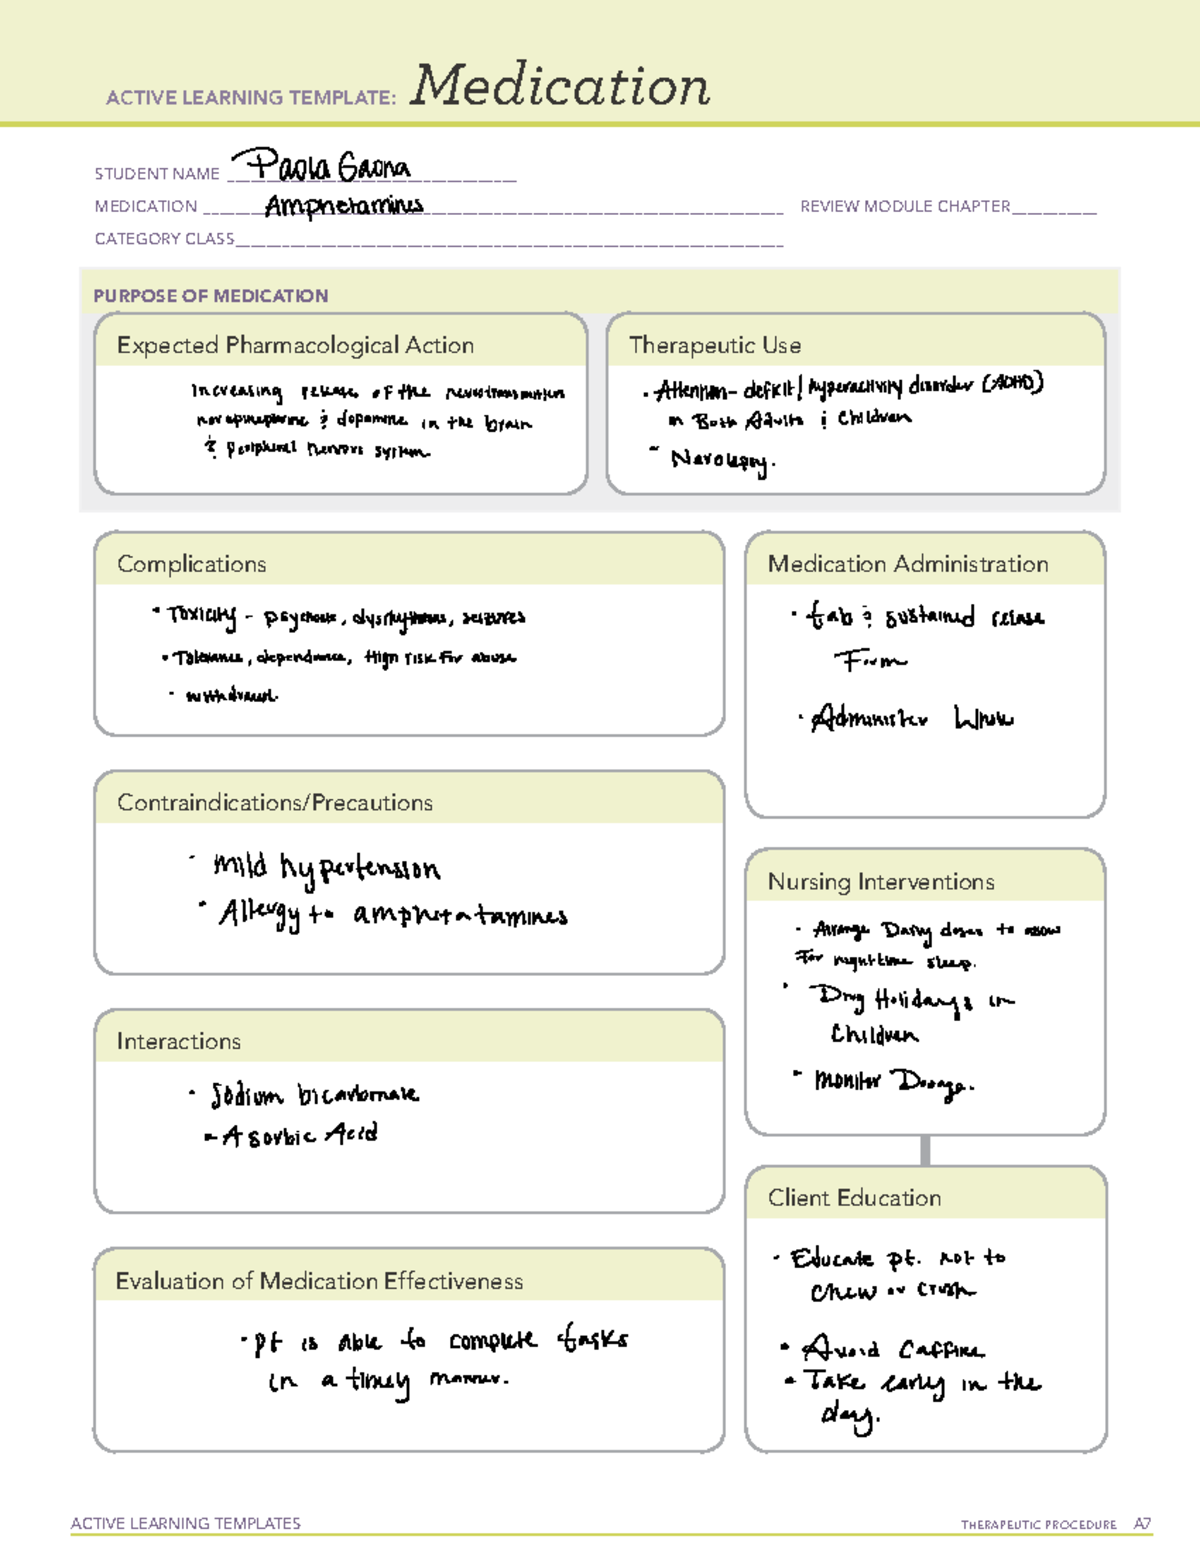 ACTIVE LEARNING TEMPLATE: Medication
STUDENT NAME Paola Gaona
MEDICATION Amphetamines REVIEW MODULE CHAPTER
CATEGORY CLASS
PURPOSE OF MEDICATION
Expected Pharmacological Action
Increasing release of the
norepinephrine & dopamine in the brain
& peripheral nervous system.
Therapeutic Use
• Attention-deficit/hyperactivity disorder (ADHD)
in Both Adults & Children
- Narcolepsy.
Complications
• Toxicity - psychosis, dysrhythmias, seizures
• Tolerance, dependence, High risk for abuse
• withdrawal.
Medication Administration
• tab & sustained release
Form
• Administer Whole
Contraindications/Precautions
• mild hypertension
• Allergy to
Nursing Interventions
• Arrange Daily doses to allow
For nighttime sleep.
• Drug Holidays in
Children
• monitor Dosage.
Interactions
• Sodium bicarbonate
- Asorbic Acid
Client Education
• Educate pt. not to
chew or crush
• Avoid Caffine
• Take early in the
day.
Evaluation of Medication Effectiveness
• Pt is able to complete tasks
in a timely manner.
ACTIVE LEARNING TEMPLATES THERAPEUTIC PROCEDURE A7